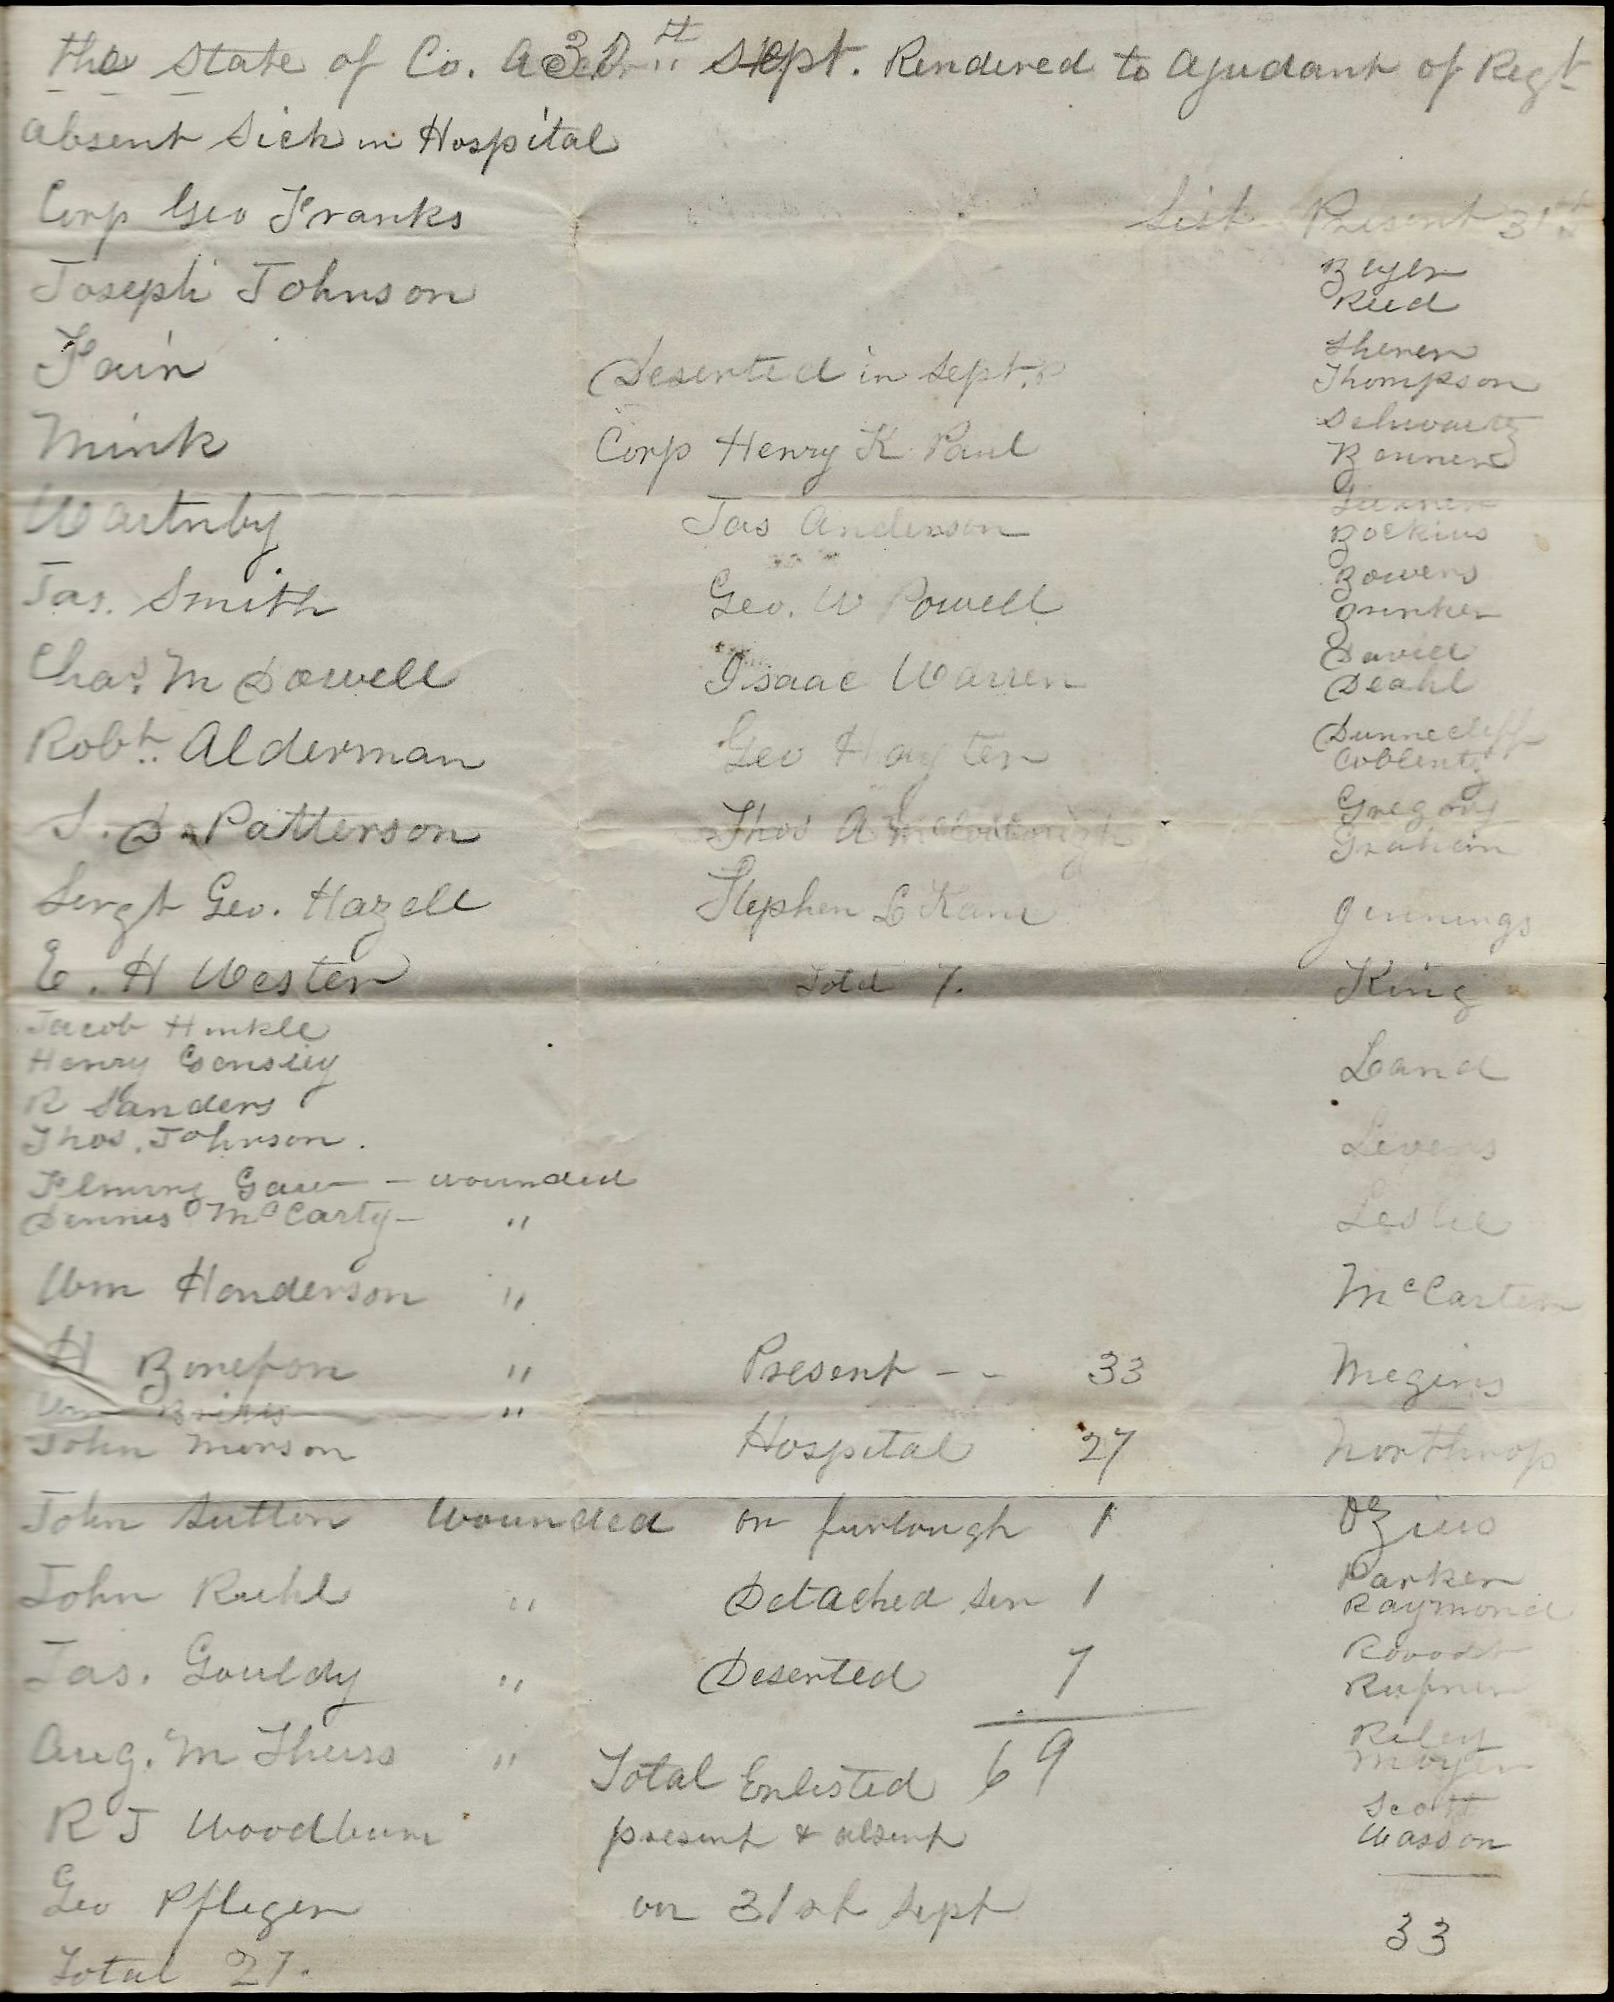 the State of Co. A 30th Sept. Rendered to Ajudant of Regt
Absent Sick in Hospital
Corp Geo Franks
Joseph Johnson
Fain
Mink
Wartnby
Jas. Smith
Chas. McDowell
Robt. Alderman
S. D. Patterson
Sergt Geo. Hazell
E. H Wester
Jacob Hinkle
Henry Gensley
R Sanders
Thos. Johnson.
Fleming Gaw - wounded
Dennis McCarty - "
Wm Henderson "
H Bonefon "
Wm "
John Morson
John Sutton wounded
John Riehl "
Jas. Gouldy "
Aug. M Thurss "
R J Woodburn
Geo Pfleger
Total 27.
Deserted in Sept.
Corp Henry K Paul
Jas Anderson
Geo. W Powell
Isaac Warren
Geo Hayten
Thos A
Stephen L Kane
Totel 7.
Present - - 33
Hospital 27
on furlough 1
Detached Ser 1
Deserted 7
69
Total Enlisted
present & absent
on 31st Sept
List Present 31st
Beyer
Reed
Sherer
Thompson
Schwartz
Bonner
Turner
Bockius
Bowers
Brinker
David
Deahl
Dunnecliff
Coblentz
Gregory
Graham
Jennings
King
Land
Levens
Leslie
McCarter
Megins
Northrop
Ozius
Parker
Raymond
Rufner
Riley
Moyer
Scott
Wasson
33